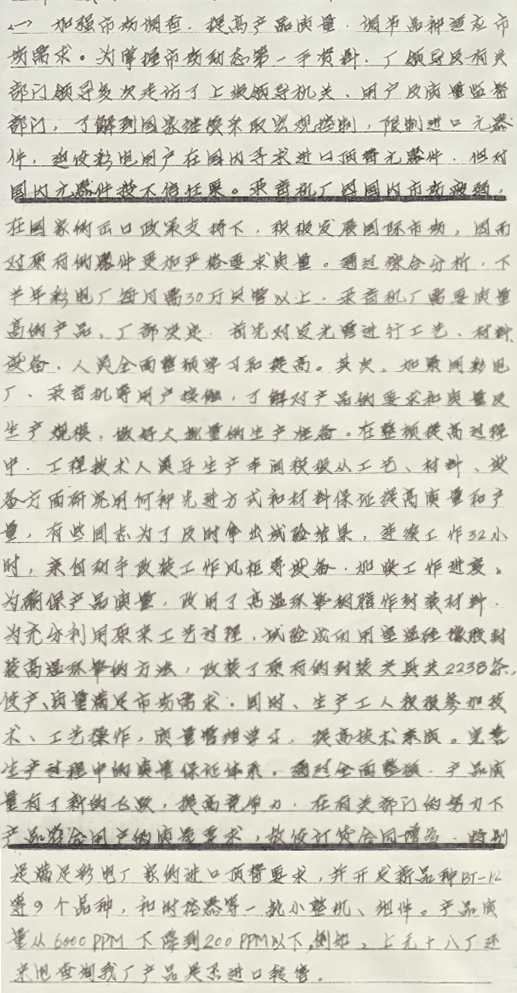 (一) 加强市场调查,提高产品质量,调节品种适应市
场需求。为掌握市场动态第一手资料,厂领导及有关
部门领导多次走访了上级领导机关、用户及质量监督
部门,了解到国家继续采取宏观控制,限制进口元器
件,迫使彩电用户在国内寻求进口顶替元器件,但对
国内元器件持不信任感。录音机厂因国内市场疲软,
在国家的出口政策支持下,积极发展国际市场,因而
对原有的器件更加严格要求质量。通过综合分析,下
半年彩电厂每月需30万只管以上,录音机厂需要质量
高的产品。厂部决定,首先对发光管进行工艺、材料、
设备、人员全面整顿学习和提高。其次,加紧同彩电
厂、录音机等用户接触,了解对产品的要求和质量及
生产规模,做好大批量的生产准备。在整顿提高过程
中,工程技术人员与生产车间积极从工艺、材料、设
备方面研究用何种先进方式和材料保证提高质量和产
量,有些同志为了及时拿出试验结果,连续工作32小
时,亲自动手改装工作风柜等设备,加快工作进度。
为确保产品质量,改用了高温环氧树脂作封装材料,
为充分利用原来工艺过程,试验成功用室温硅橡胶封
装高温环氧的方法,改装了原有的封装夹具共2238条,
使产、质量满足市场需求。同时、生产工人积极参加技
术、工艺操作,质量管理学习,提高技术素质。完善
生产过程中的质量保证体系。通过全面整顿,产品质
量有了新的飞跃,提高竞争力,在有关部门的努力下
产品符合用户的质量要求,故使订货合同增多,特别
是满足彩电厂家的进口顶替要求,并开发新品种BT-12
等9个品种,和时控器等一批小整机、组件。产品质
量从6000PPM下降到200PPM以下,例如,上无十八厂还
来电查询我厂产品是否进口装管。